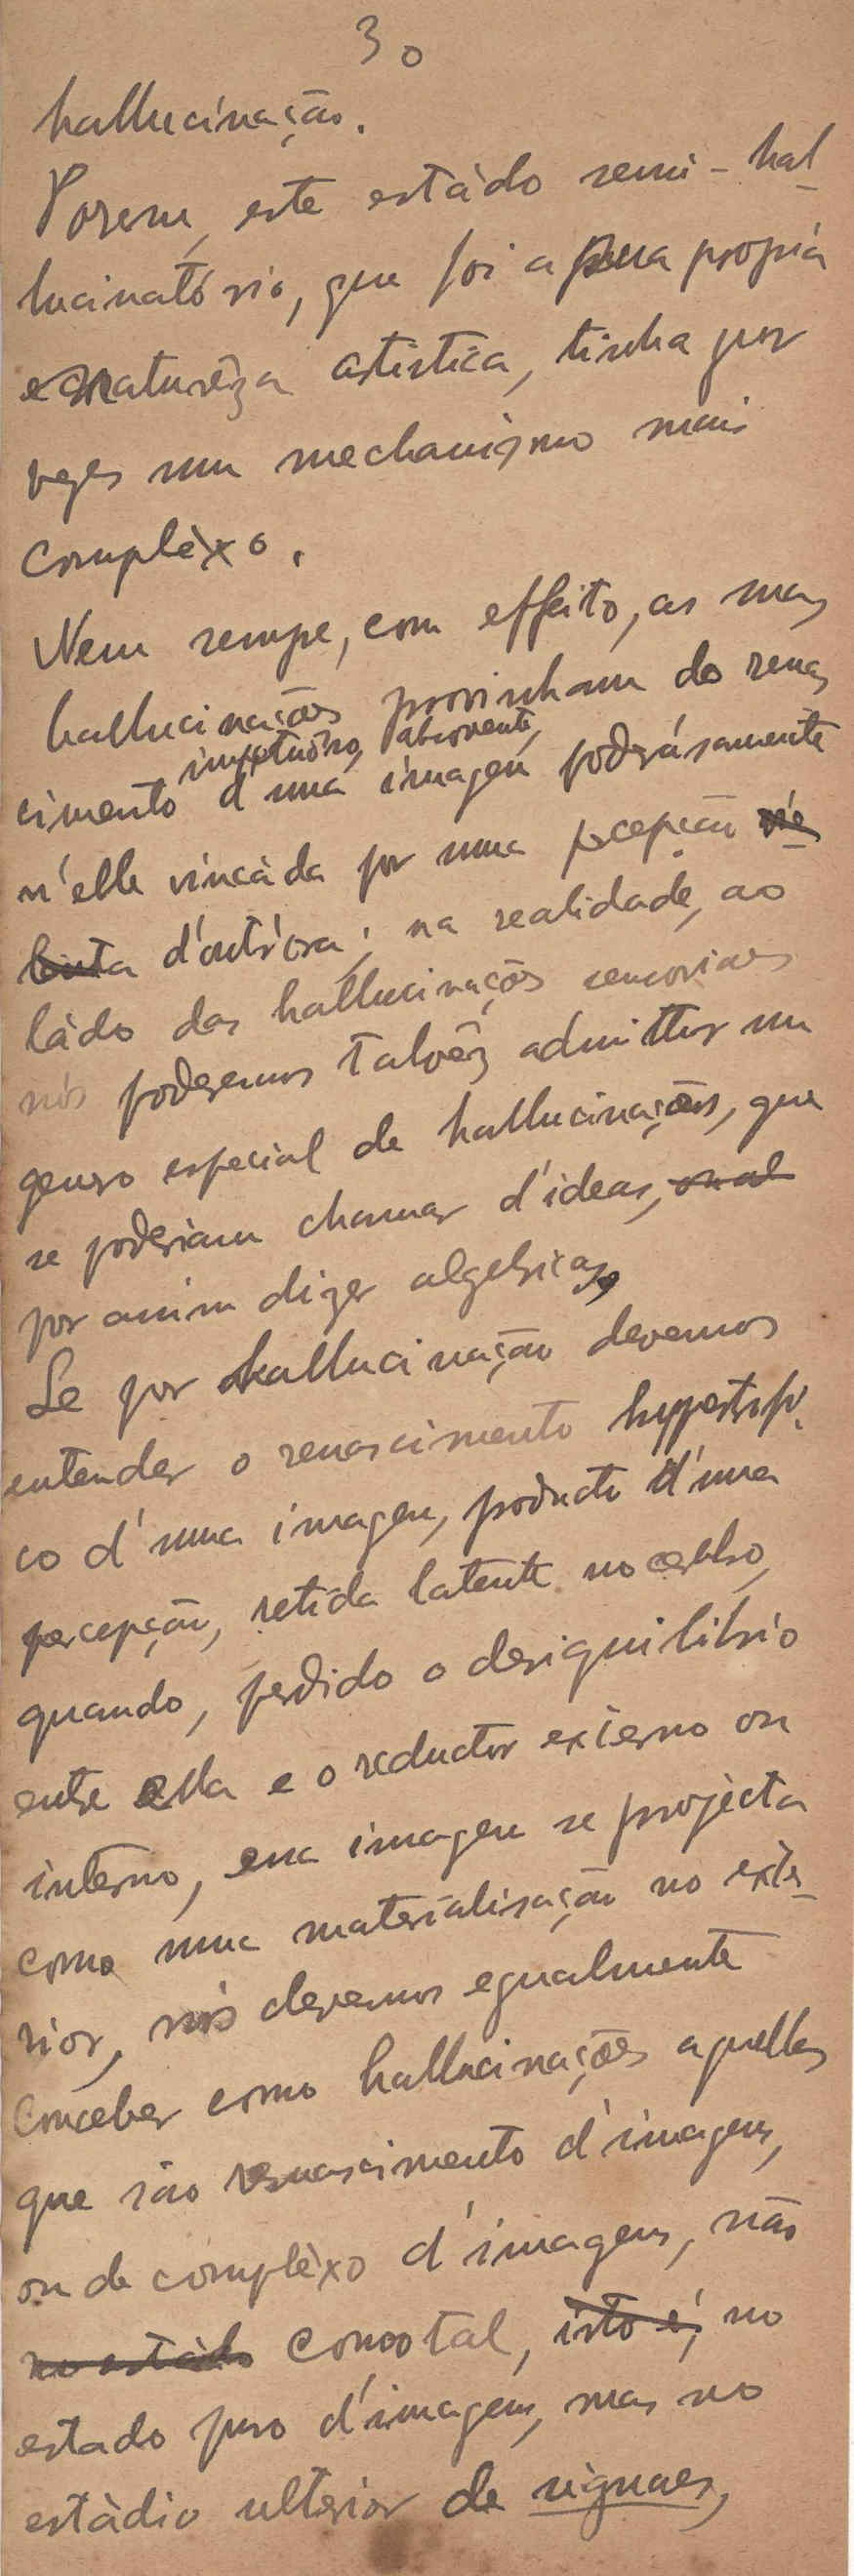 30
hallucinação.
Porem, este estádo semi-hal-
lucinatório, que foi a sua propria
natureza artistica, tinha por
vezes um mechanismo mais
complèxo.
Nem sempe, com effeito, as suas
hallucinações provinham do renas
impetuôso, absorvente,
cimento d'uma imagem poderósamente
n'elle vincàda por uma percepção vio
lenta d'outr'óra; na realidade, ao
ládo das hallucinações sensoriaes
nós poderemos talvêz admittir um
genero especial de hallucinações, que
se poderiam chamar d'ideas,
por assim dizer algebricas.
Se por hallucinação devemos
entender o renascimento hypertrofi-
co d'uma imagem, producto d'uma
percepção, retida latente no cerebro,
quando, perdido o desiquilibrio
entre ella e o reductor externo ou
interno, essa imagem se projècta
como uma materialisação no exte-
rior, nós devemos egualmente
conceber como hallucinações aquellas
que são renascimento d'imagens,
ou de complèxo d'imagens, não
no estàdo como tal, isto é, no
estado puro d'imagem, mas no
estàdio ulterior de signaes,